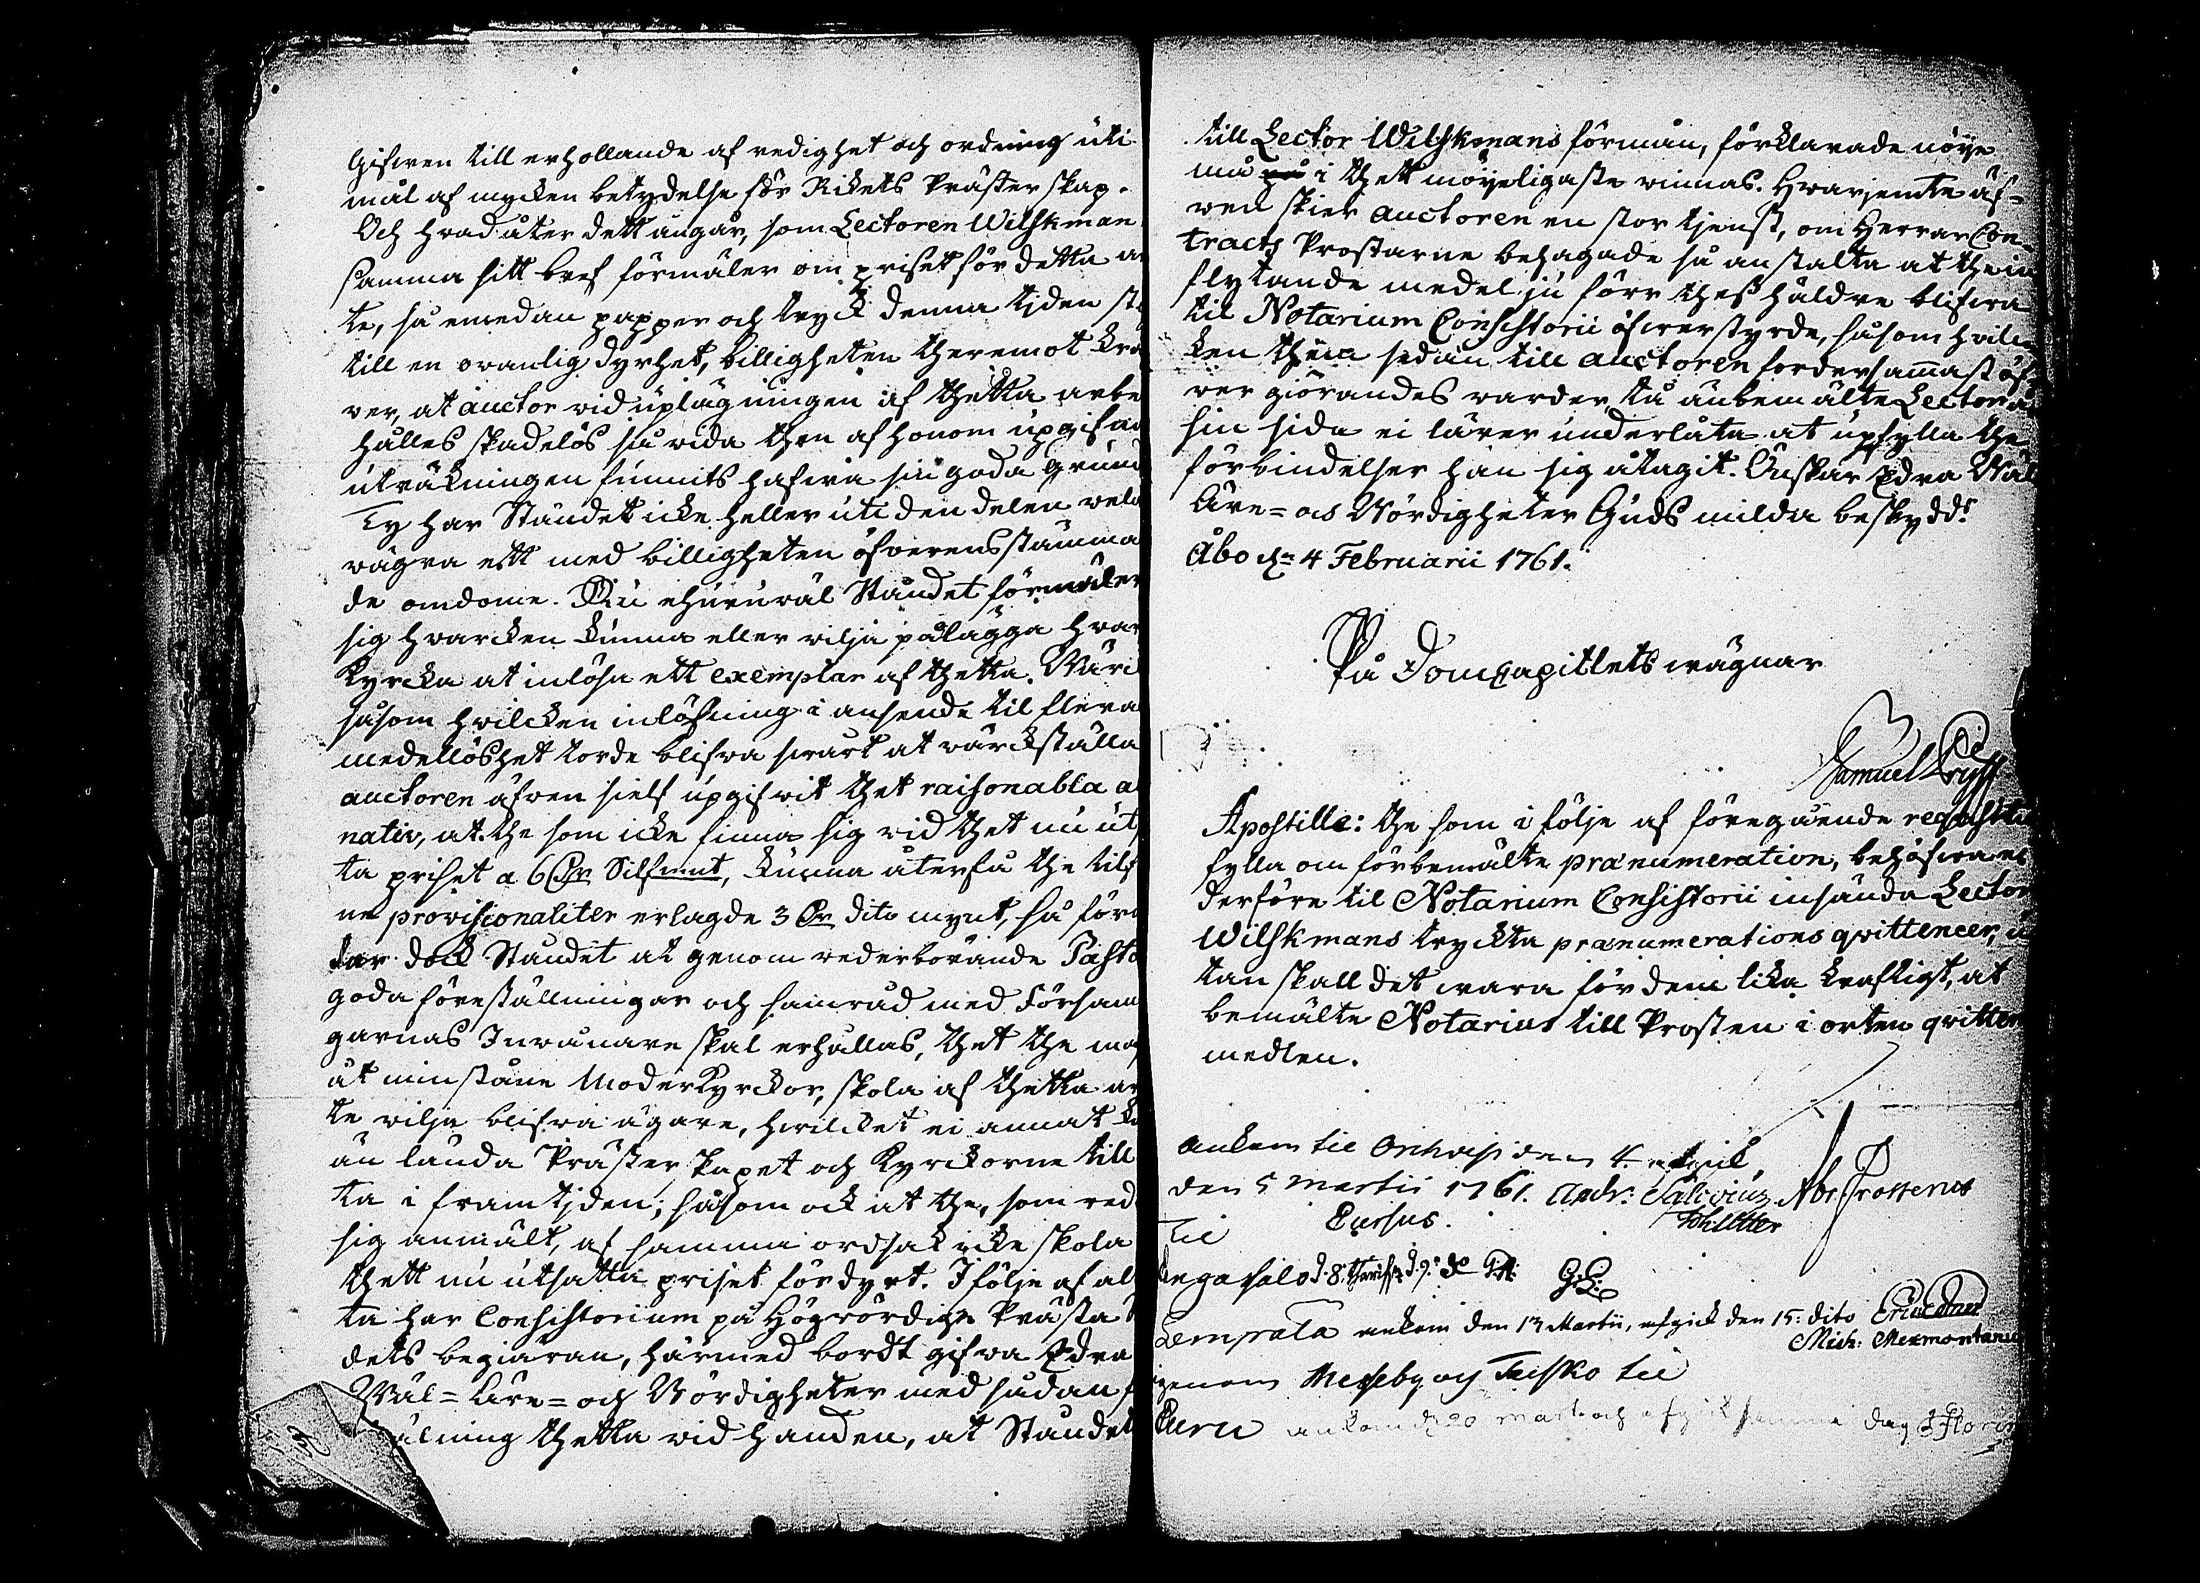 gifwen till erhollande af redighet och ordning uti
mål af mycken betydelse för Rikets Präster skap.
Och hvad åter dett angår, som Lectoren Wilskman
samma sitt bref förmäler om priset för detta ar
te, så emedan papper och tryck denna tjden sti
till en ovanlig dyrhet, billigheten theremot kra
ver, at auctor vid uplägningen af thetta arbe
hålles skadelös så vida then af honom upgifne
uträkningen funnits hafwa sin goda grund
Ty har Ståndet icke heller uti den delen velat
vägra ett med billigheten öfverensstämma
de omdöme. Nu ehuruväl Ståndet förmäler
sig hvarcken kunna eller vilja pålägga hvar
Kyrcka at inlösa ett exemplar af thetta. Värc
såsom hvilcken inlösning i anseende til flera
medellöshet torde blifva svårt at värckställa
auctoren äfven sielf upgifvit thet raisonabla al
nativ, at the som icke finna sig vid thet nu ut
ta priset a 6 Dr Silfmnt, kunna återfå the till
ne provisionaliter erlagde 3 Dr dito mynt, så för
tar dock Ståndet at genom vederbörande Pasto
goda föreställningar och samråd med Försam
garnas Invånare skal erhållas, thet the mäs
åt minstone Moder Kyrckor, skola af thetta ar
te vilja blifva ägare, hvilcket ei annat ka
än lända Präster skapet och Kyrckorne till
ta i framtjden; såsom ock at the, som red
sig anmält, af samma ordsak icke skola
thett nu utsatta priset för dyrt. I följe af al
ta har Consistorium på Högvördige Prästa
dets begiäran, härmed bordt gifva Edra
Wäl= Äre= och Vördigheter med sådan
älning thetta vid handen, at Ståndet
till Lector Wilskmans förmån, förklarade nöye
må i thett möyeligaste vinnas. Hvarjemte äf-
ven skier auctoren en stor tjenst, om Herrar Con-
tracts Prostarne behagade så anstalta at the in
flytande medel ju förr thess häldre blifva
til Notarium Consistorii öfverstyrde, såsom hvilc-
ken them sedan till auctoren fordersammast öf-
ver giörandes varder, tå ånbemälte Lector å
sin sida ei lärer underlåta at upfylla the
förbindelser han sig åtagit. Önskar Edra Wäl
Äre= och Vördigheter Guds milda beskydd.
Åbo dn 4 Februarii 1761.
På Domcapitlets wägnar
Samuel Pryss
Apostille: the som i följe af föregående requisition
fylla om förbemälte prænumeration, behöfva ei
derföre til Notarium Consistorii insända Lector
Wilskmans tryckta prænumerations qvittencer, u
tan skall det vara för dem lika kraftigt, at
bemälte Notarius till Prosten i orten qvitter
medlen.
ankom til den 4. afgick,
den 5 Martii 1761. Andr: Salovius Abr: Frosterus
Til Cursus. Joh. Utter
Ingasalo d. 8. d. 9. do
Lempäla ankom den 13 Martii, afgick den 15: dito Eric
Mich: Mexmontanus
genom Messeby och Teisko til
Eura ankom d. 20 Martii och afgick samma dag J Florin